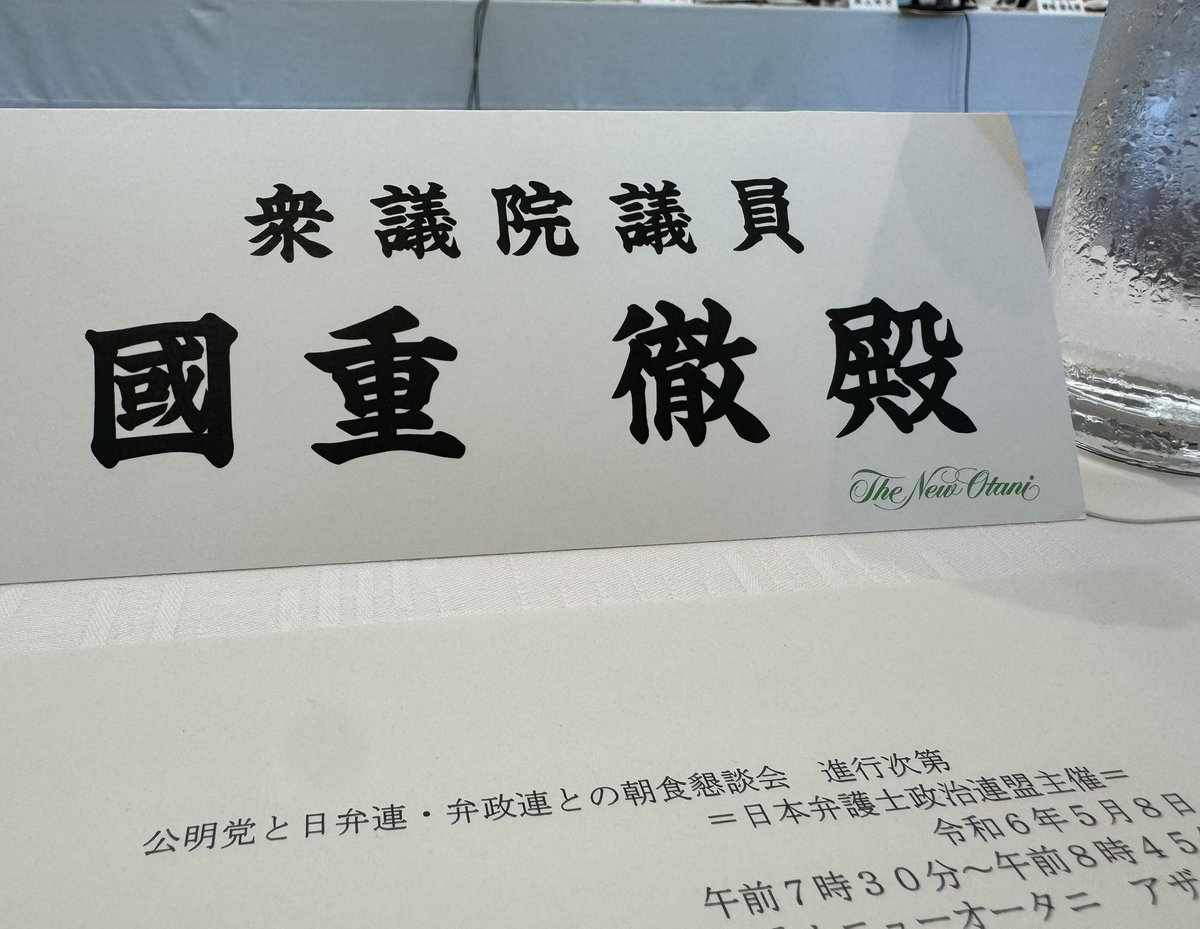 衆議院議員
國重 徹殿
The New Otani
公明党と日弁連・弁政連との朝食懇談会 進行次第
＝日本弁護士政治連盟主催＝
令和６年５月８日
午前７時３０分～午前８時４５
ニューオータニ アザ